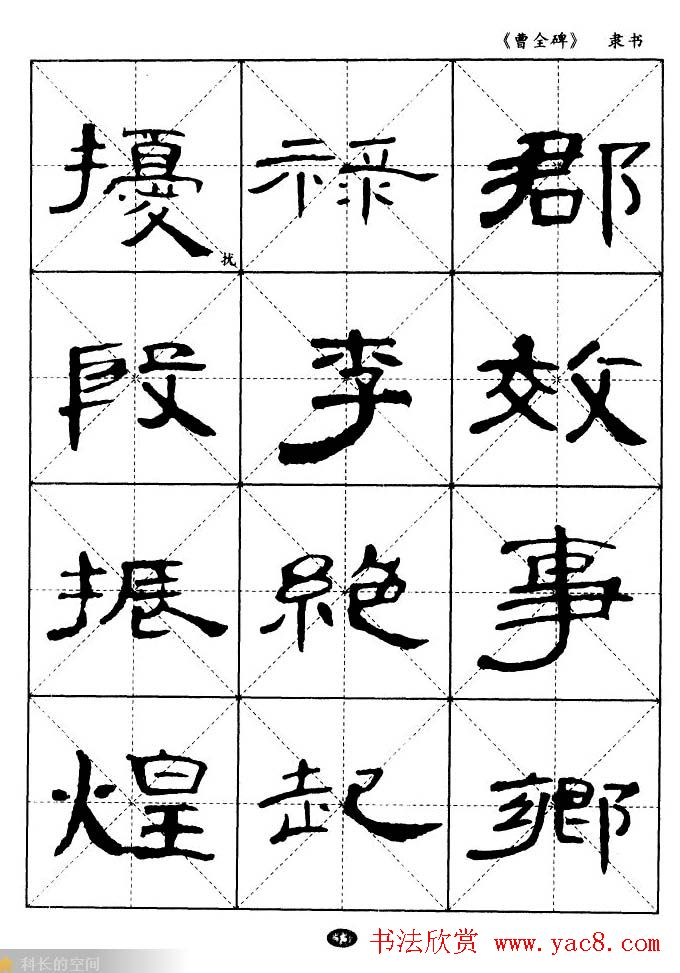 《曹全碑》 隶书
郡效事鄉
禄李絶起
擾扰段振煌
书法欣赏 www.yac8.com
科长的空间